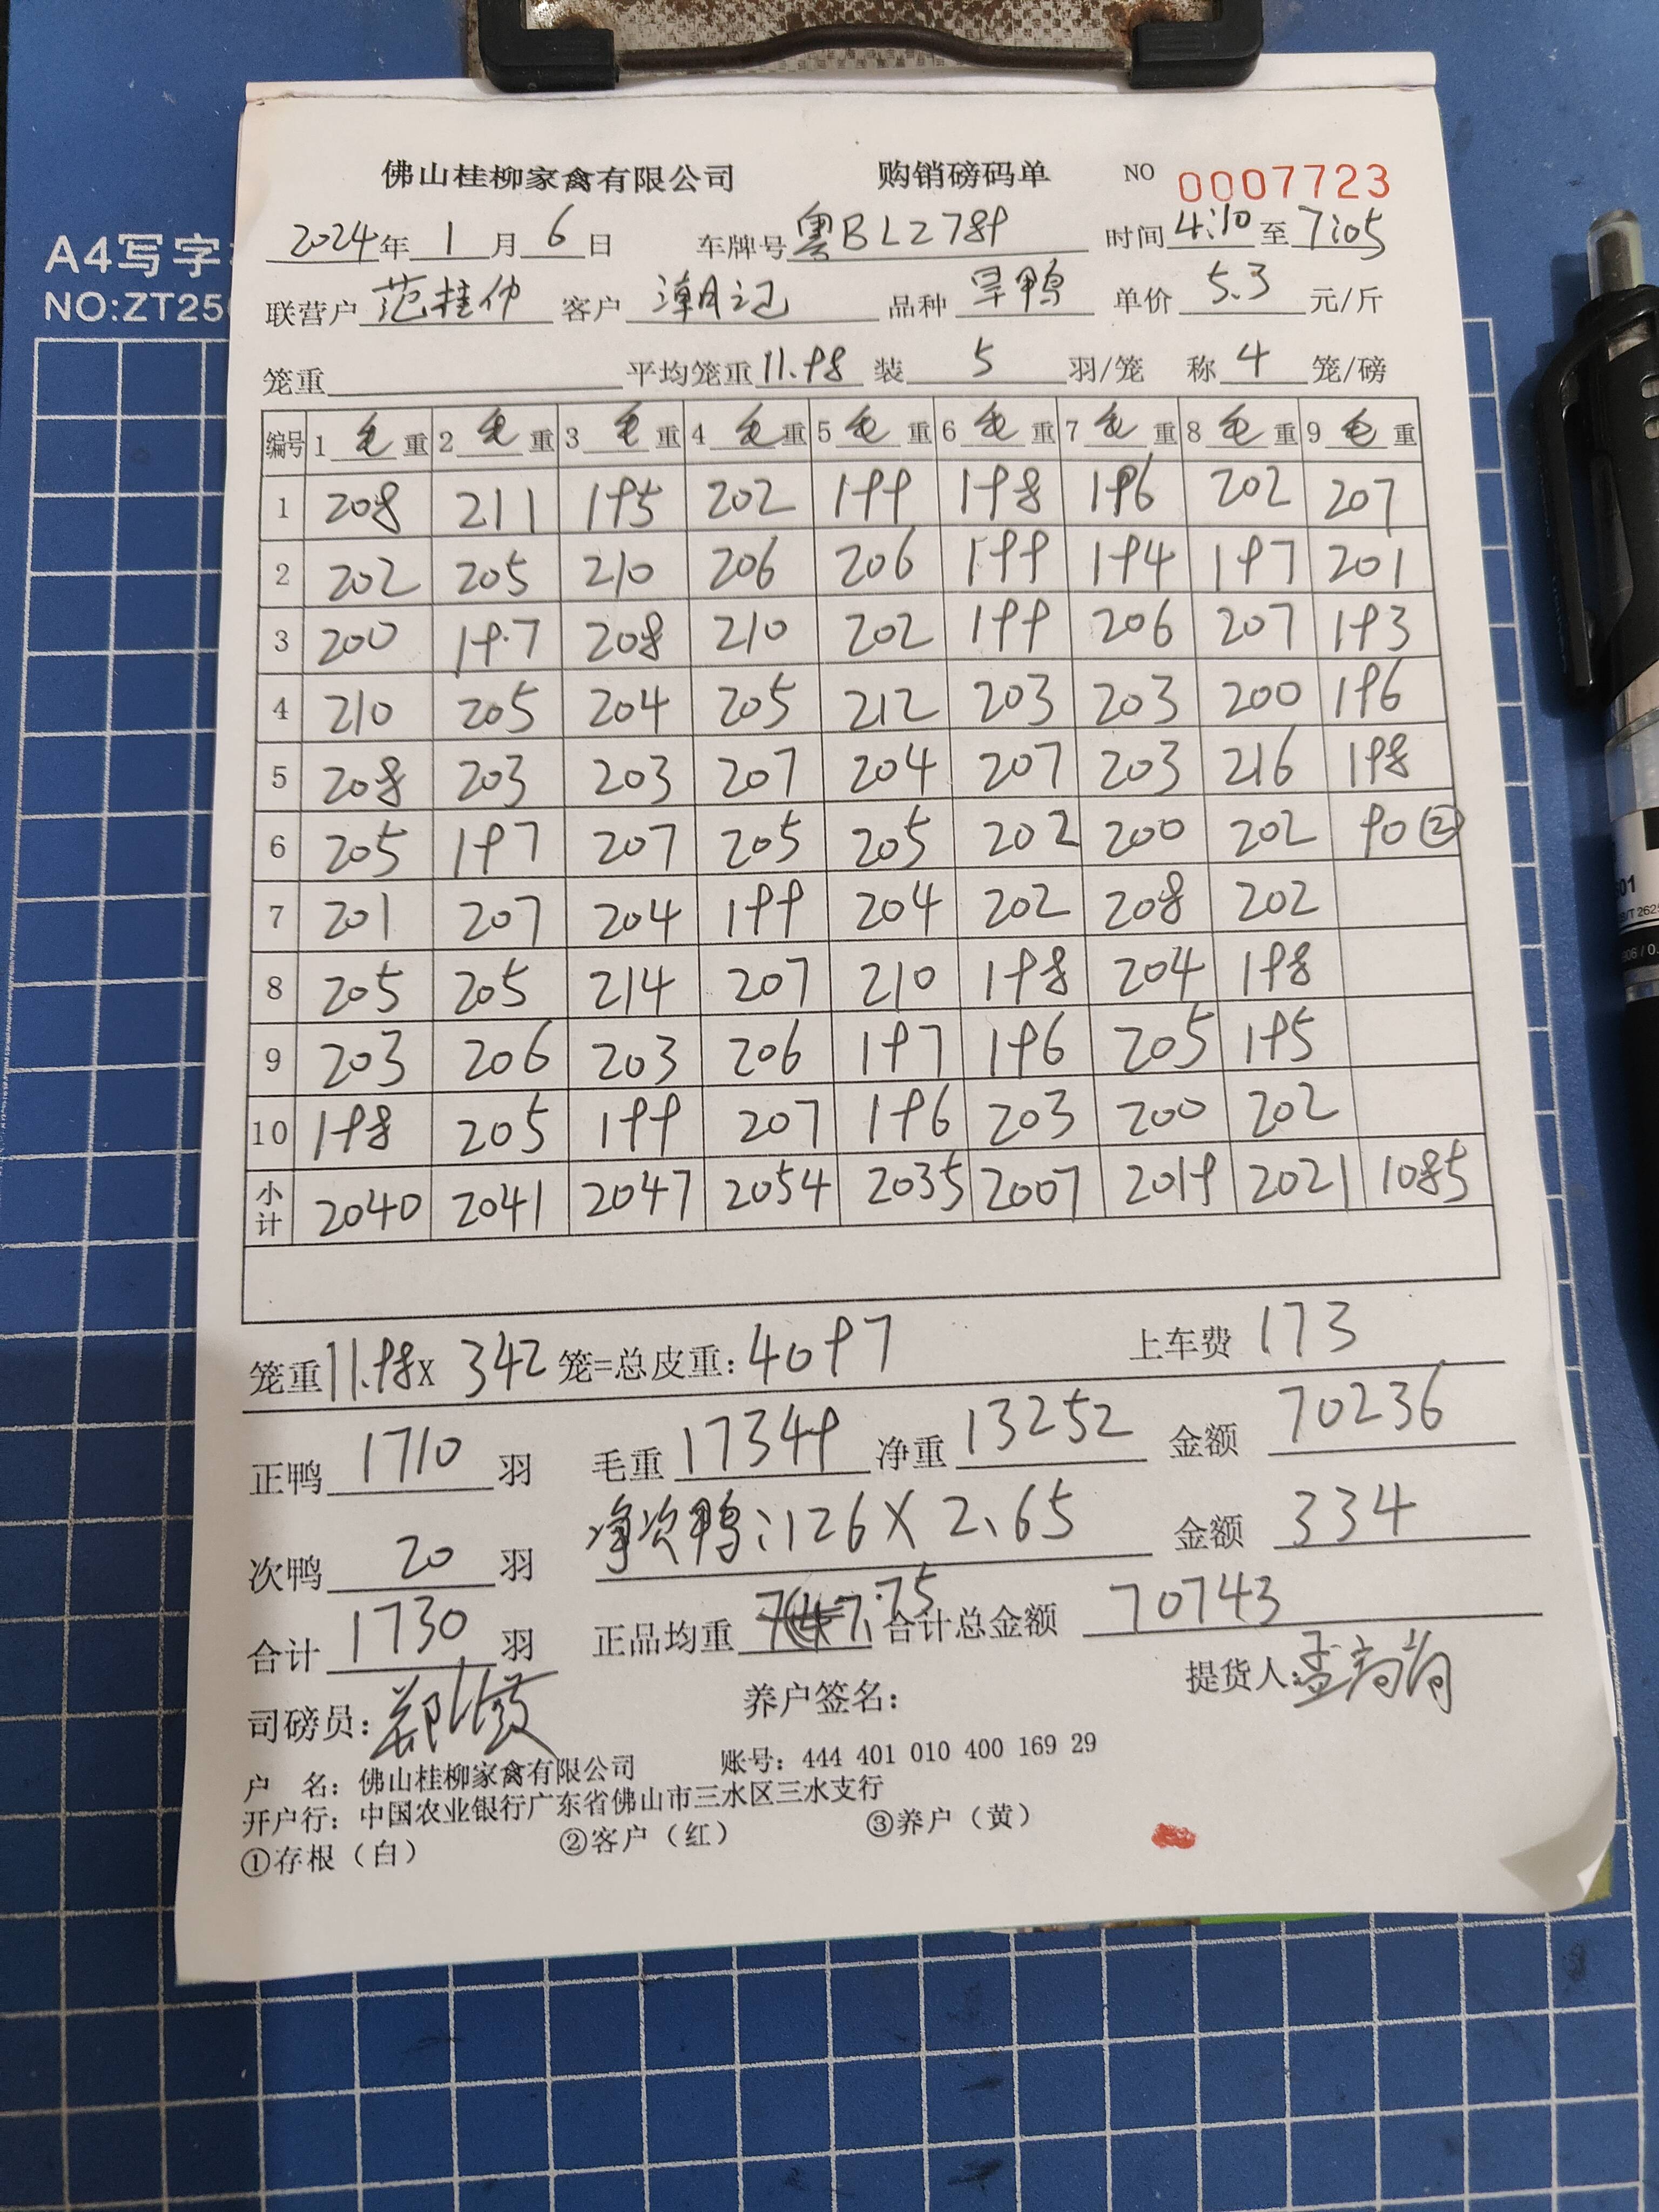 佛山桂柳家禽有限公司 购销磅码单 NO 0007723
2024年 1 月 6 日 车牌号 粤BL2789 时间 4:10 至 7:05
联营户 范桂仲 客户 潮记 品种 旱鸭 单价 5.3 元/斤
笼重 平均笼重 11.98 装 5 羽/笼 称 4 笼/磅
编号 1 毛重 2 毛重 3 毛重 4 毛重 5 毛重 6 毛重 7 毛重 8 毛重 9 毛重
1 208 211 195 202 199 198 196 202 207
2 202 205 210 206 206 199 194 197 201
3 200 197 208 210 202 199 206 207 193
4 210 205 204 205 212 203 203 200 196
5 208 203 203 207 204 207 203 216 198
6 205 197 207 205 205 202 200 202 90 ②
7 201 207 204 199 204 202 208 202
8 205 205 214 207 210 198 204 198
9 203 206 203 206 197 196 205 195
10 198 205 199 207 196 203 200 202
小计 2040 2041 2047 2054 2035 2007 2019 2021 1085
笼重 11.98 X 342 笼=总皮重: 4097 上车费 173
正鸭 1710 羽 毛重 17349 净重 13252 金额 70236
次鸭 20 羽 净次鸭: 126 X 2.65 金额 334
合计 1730 羽 正品均重 7.75 合计总金额 70743
司磅员: 养户签名: 提货人:
户 名: 佛山桂柳家禽有限公司 账号: 444 401 010 400 169 29
开户行: 中国农业银行广东省佛山市三水区三水支行
①存根（白） ②客户（红） ③养户（黄）
A4写字
NO:ZT25